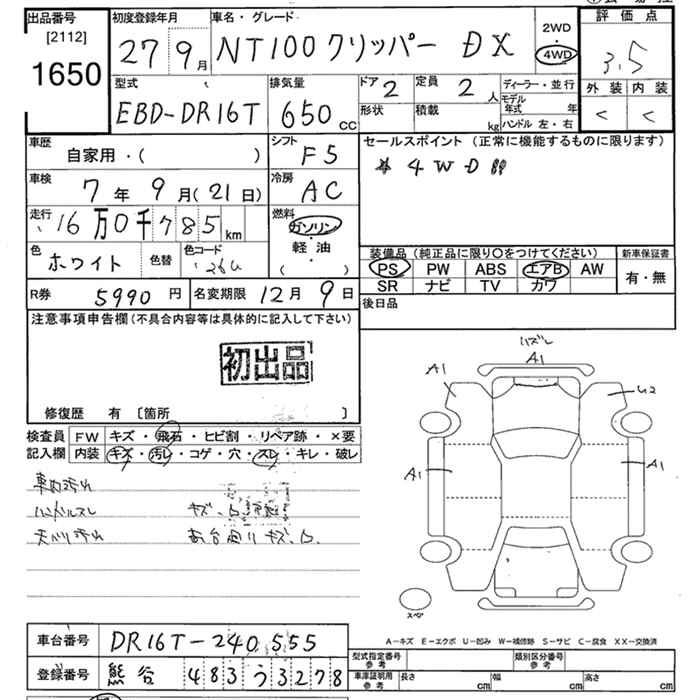 出品番号 初度登録年月 車名・グレード 2WD 評価点
[2112] 27 9月 NT100クリッパー DX 4WD 3.5
1650 型式 排気量 ドア 2 定員 2人 ディーラー・並行 外装 内装
EBD-DR16T 650cc 形状 積載 kg モデル年式 年 < <
ハンドル 左・右
車歴 自家用・( ) シフト F5 セールスポイント(正常に機能するものに限ります)
車検 7年 9月(21日) 冷房 AC 4WD
走行 16万0千785km 燃料 ガソリン
軽油
( )
色 ホワイト 色替 色コード 26U 装備品(純正品に限り〇をつけてください) 新車保証書
PS PW ABS エアB AW 有・無
SR ナビ TV カワ
R券 5990円 名変期限 12月 9日 後日品
注意事項申告欄(不具合内容等は具体的に記入して下さい)
ハズレ
A1
A1 U2
初出品
修復歴 有 〔箇所 〕
検査員 FW キズ・飛石・ヒビ割・リペア跡・×要
記入欄 内装 キズ・汚レ・コゲ・穴・スレ・キレ・破レ
A1 A1
車内汚れ
ハンドルスレ
天バリ汚れ 荷台廻りキズ、凹
スペア
A−キズ E−エクボ U−凹み W−補修跡 S−サビ C−腐食 XX−交換済
車台番号 DR16T-240555
型式指定番号 参考 類別区分番号 参考
登録番号 熊谷 483 う 3278
車庫証明用 参考 長さ cm 幅 cm 高さ cm